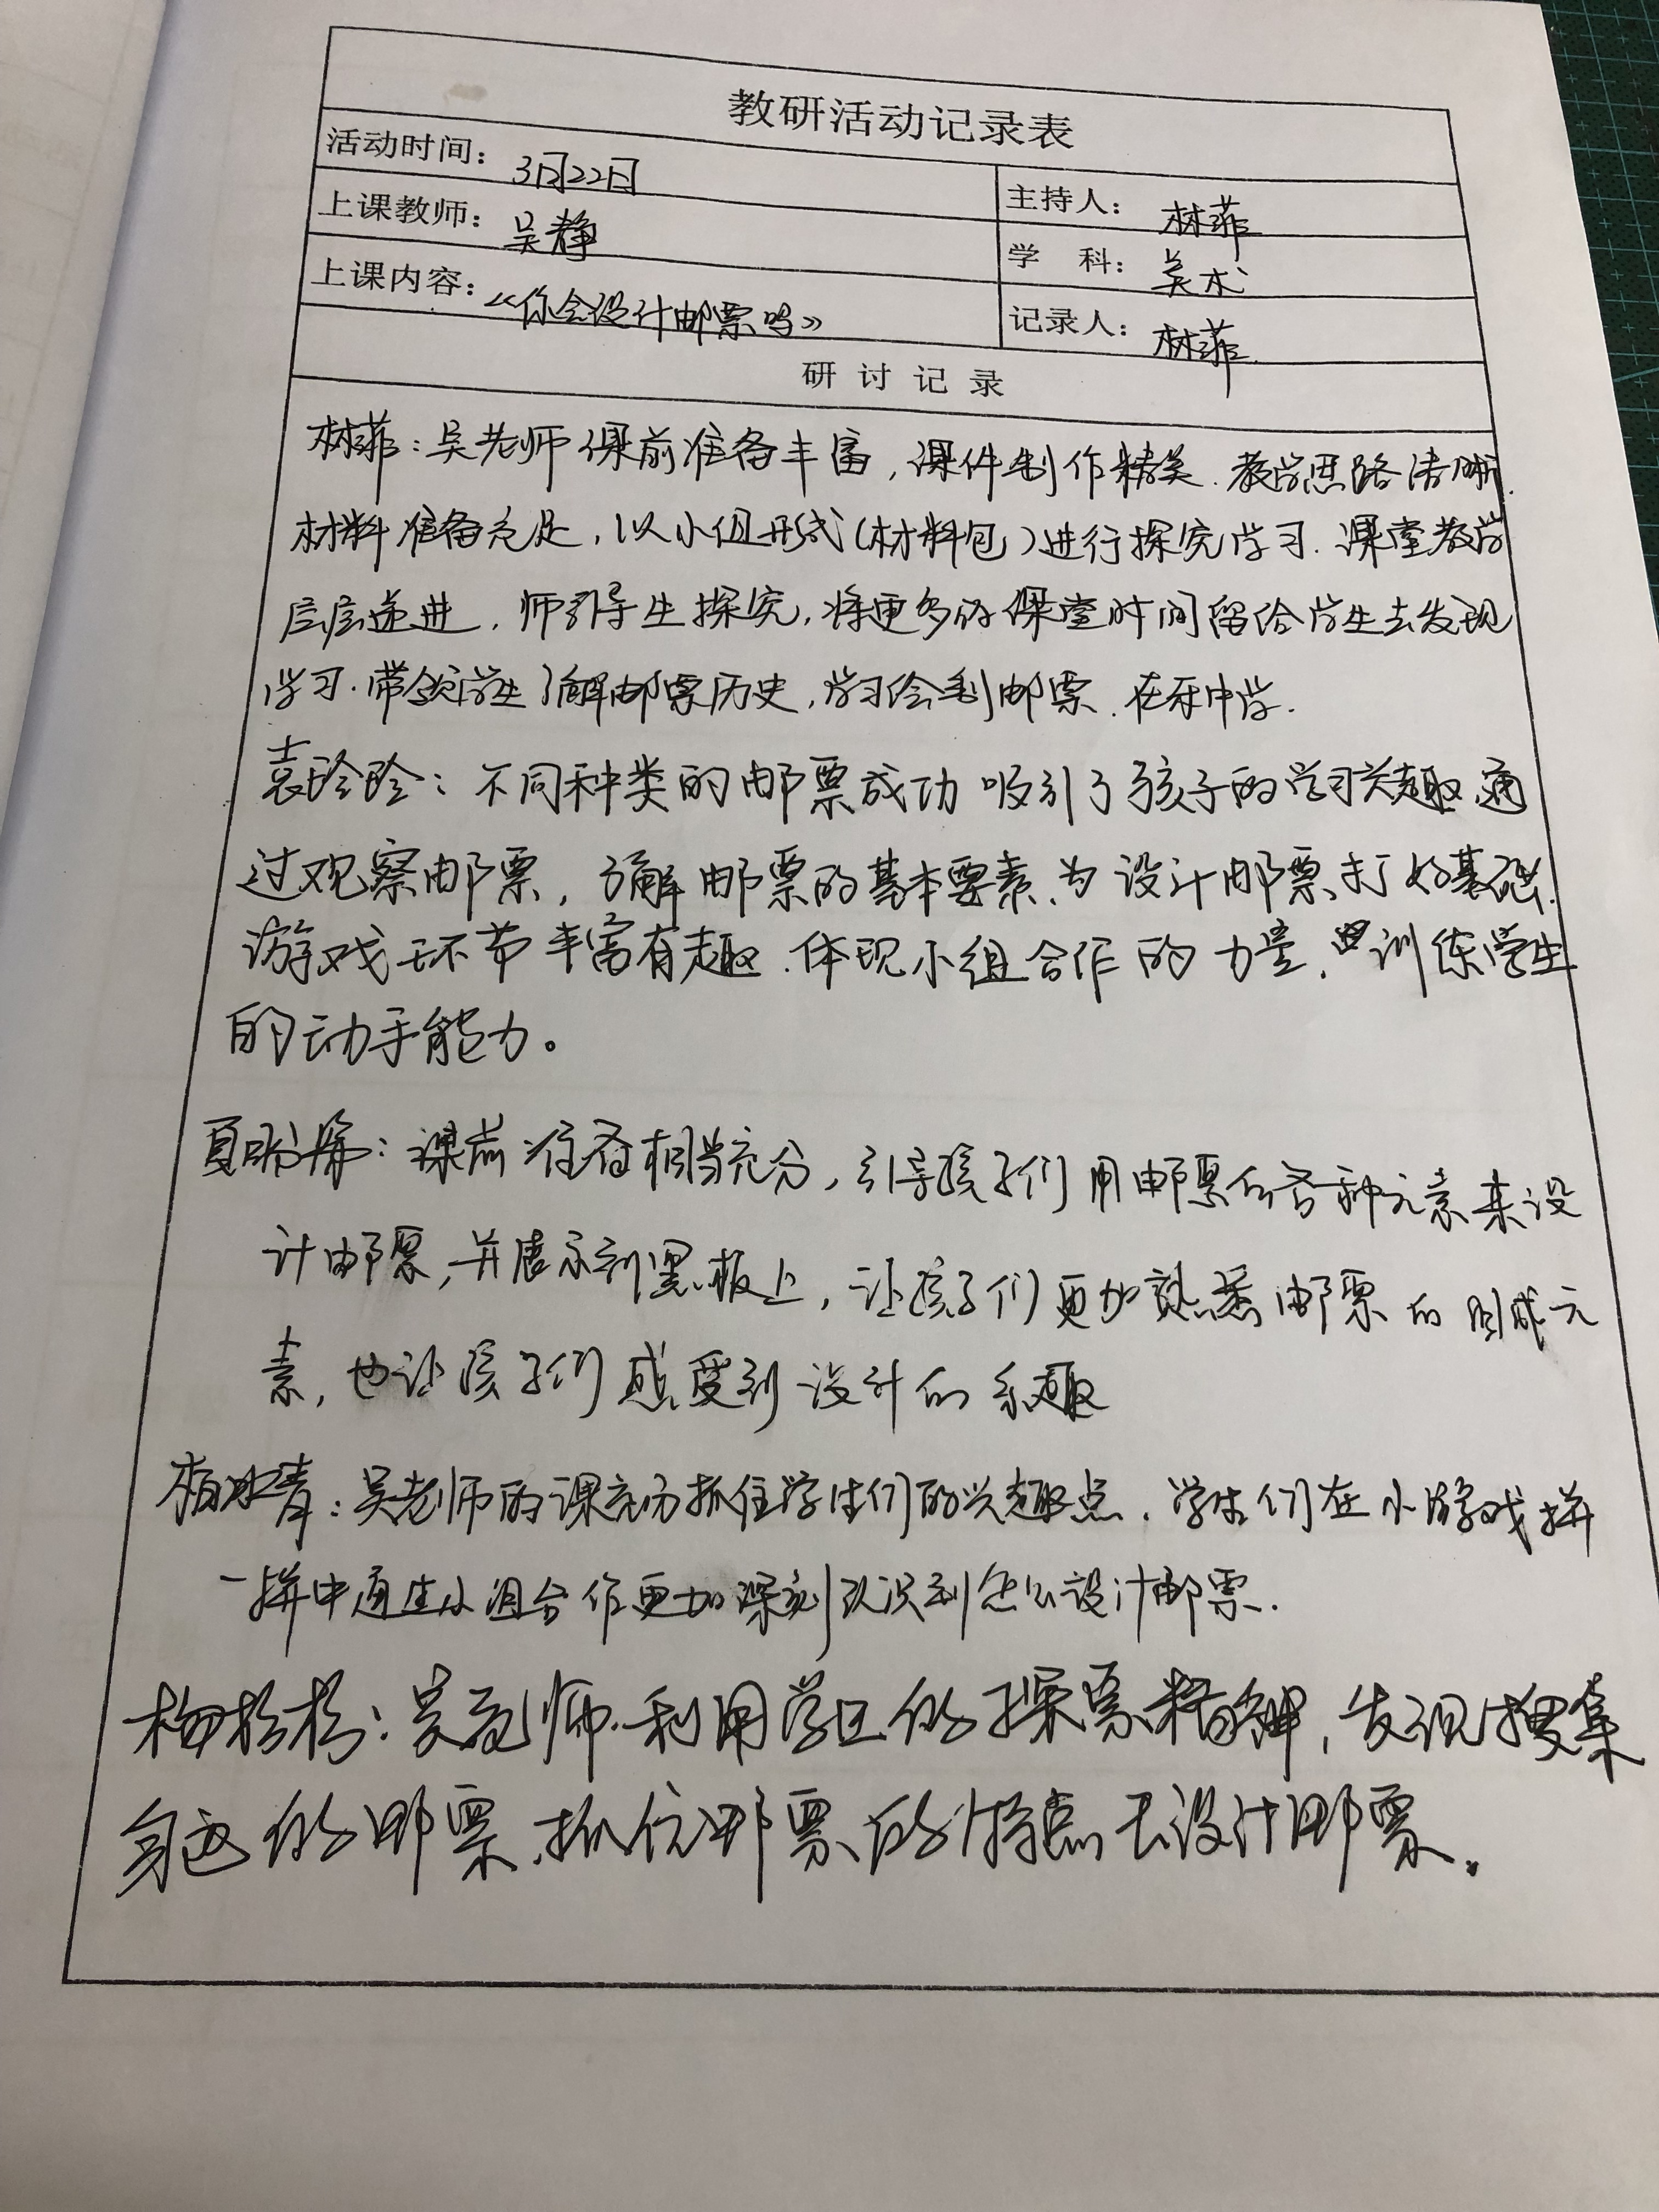 教研活动记录表
活动时间：3月22日
主持人：林菲
上课教师：吴静
学 科：美术
上课内容：《你会设计邮票吗》
记录人：林菲
研 讨 记 录
林菲：吴老师课前准备丰富，课件制作精美．教学思路清晰．
材料准备充足，以小组形式（材料包）进行探究学习．课堂教学
层层递进，师引导生探究，将更多的课堂时间留给学生去发现
学习．带领学生了解邮票历史，学习绘制邮票．在玩中学．
袁玲玲：不同种类的邮票成功吸引了孩子的学习兴趣，通
过观察邮票，了解邮票的基本要素、为设计邮票打好基础．
游戏环节丰富有趣．体现小组合作的力量，训练学生
的动手能力。
夏：课前准备相当充分，引导孩子们用邮票的各种元素来设
计邮票，并展示到黑板上，让孩子们更加熟悉邮票的组成元
素，也让孩子们感受到设计的乐趣
柏冰青：吴老师的课充分抓住学生们的兴趣点．学生们在小游戏拼
一拼中通过小组合作更加深刻认识到怎么设计邮票．
吴老师利用学区的探票精神，发现搜集
身边的邮票．抓住邮票的特点去设计邮票。